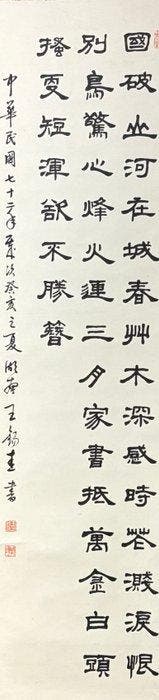 國破山河在城春艸木深感時花濺淚恨
別鳥驚心烽火連三月家書抵萬金白頭
搔更短渾欲不勝簪
中華民國七十二年歲次癸亥之夏湖南王錫書